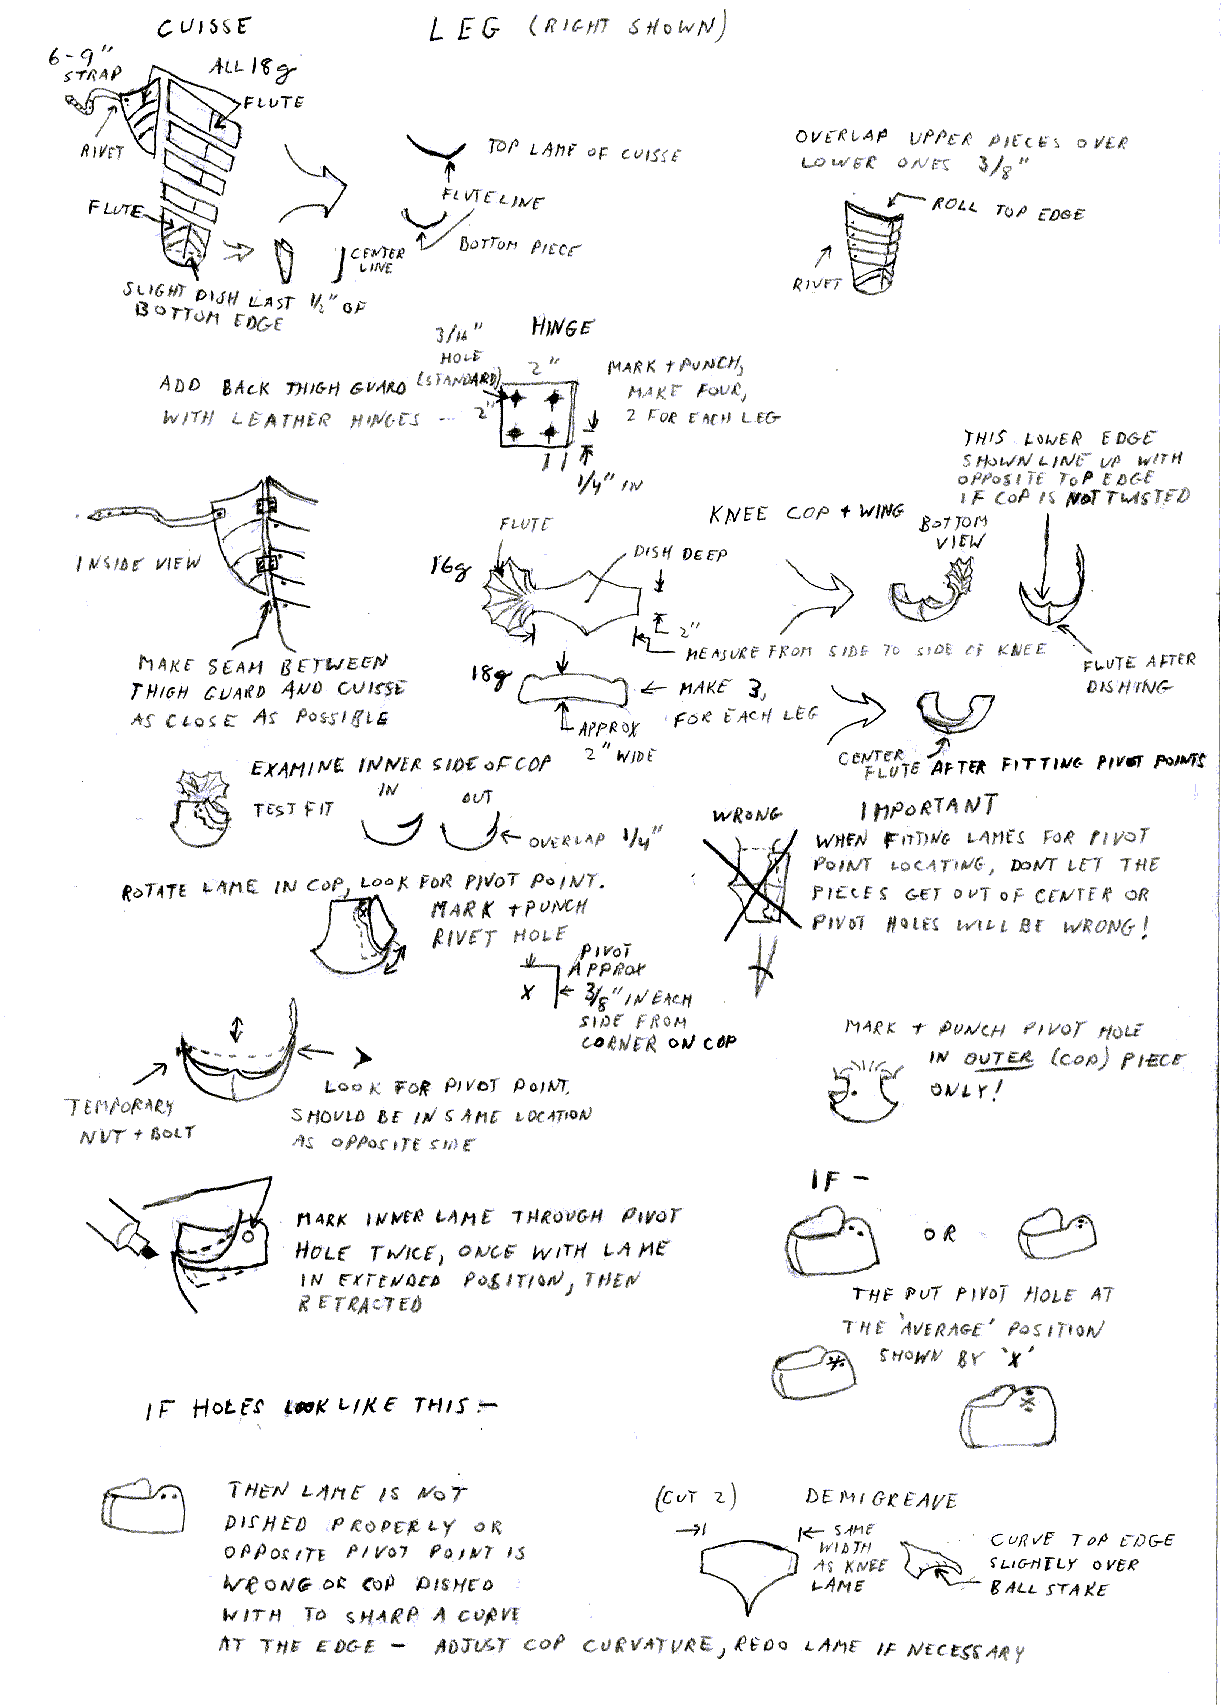 CUISSE
LEG (RIGHT SHOWN)
6-9"
STRAP
ALL 18g
FLUTE
RIVET
FLUTE
SLIGHT DISH LAST 1/2" OF
BOTTOM EDGE
TOP LAME OF CUISSE
FLUTE LINE
BOTTOM PIECE
CENTER
LINE
OVERLAP UPPER PIECES OVER
LOWER ONES 3/8"
ROLL TOP EDGE
RIVET
HINGE
3/16"
HOLE
(STANDARD)
2"
2"
MARK + PUNCH,
MAKE FOUR,
2 FOR EACH LEG
1/4" IN
ADD BACK THIGH GUARD
WITH LEATHER HINGES --
INSIDE VIEW
MAKE SEAM BETWEEN
THIGH GUARD AND CUISSE
AS CLOSE AS POSSIBLE
THIS LOWER EDGE
SHOWN LINE UP WITH
OPPOSITE TOP EDGE
IF COP IS NOT TWISTED
KNEE COP + WING
BOTTOM
VIEW
FLUTE
16g
DISH DEEP
2"
MEASURE FROM SIDE TO SIDE OF KNEE
FLUTE AFTER
DISHING
18g
MAKE 3,
FOR EACH LEG
APPROX
2" WIDE
CENTER
FLUTE AFTER FITTING PIVOT POINTS
EXAMINE INNER SIDE OF COP
TEST FIT
IN
OUT
OVERLAP 1/4"
ROTATE LAME IN COP, LOOK FOR PIVOT POINT.
MARK + PUNCH
RIVET HOLE
X
PIVOT
APPROX
3/8" IN EACH
SIDE FROM
CORNER ON COP
WRONG
IMPORTANT
WHEN FITTING LAMES FOR PIVOT
POINT LOCATING, DONT LET THE
PIECES GET OUT OF CENTER OR
PIVOT HOLES WILL BE WRONG!
TEMPORARY
NUT + BOLT
LOOK FOR PIVOT POINT,
SHOULD BE IN SAME LOCATION
AS OPPOSITE SIDE
MARK + PUNCH PIVOT HOLE
IN OUTER (COP) PIECE
ONLY!
MARK INNER LAME THROUGH PIVOT
HOLE TWICE, ONCE WITH LAME
IN EXTENDED POSITION, THEN
RETRACTED
IF -
OR
THE PUT PIVOT HOLE AT
THE 'AVERAGE' POSITION
SHOWN BY 'X'
IF HOLES LOOK LIKE THIS:-
THEN LAME IS NOT
DISHED PROPERLY OR
OPPOSITE PIVOT POINT IS
WRONG OR COP DISHED
WITH TO SHARP A CURVE
AT THE EDGE - ADJUST COP CURVATURE, REDO LAME IF NECESSARY
(CUT 2)
DEMIGREAVE
SAME
WIDTH
AS KNEE
LAME
CURVE TOP EDGE
SLIGHTLY OVER
BALL STAKE